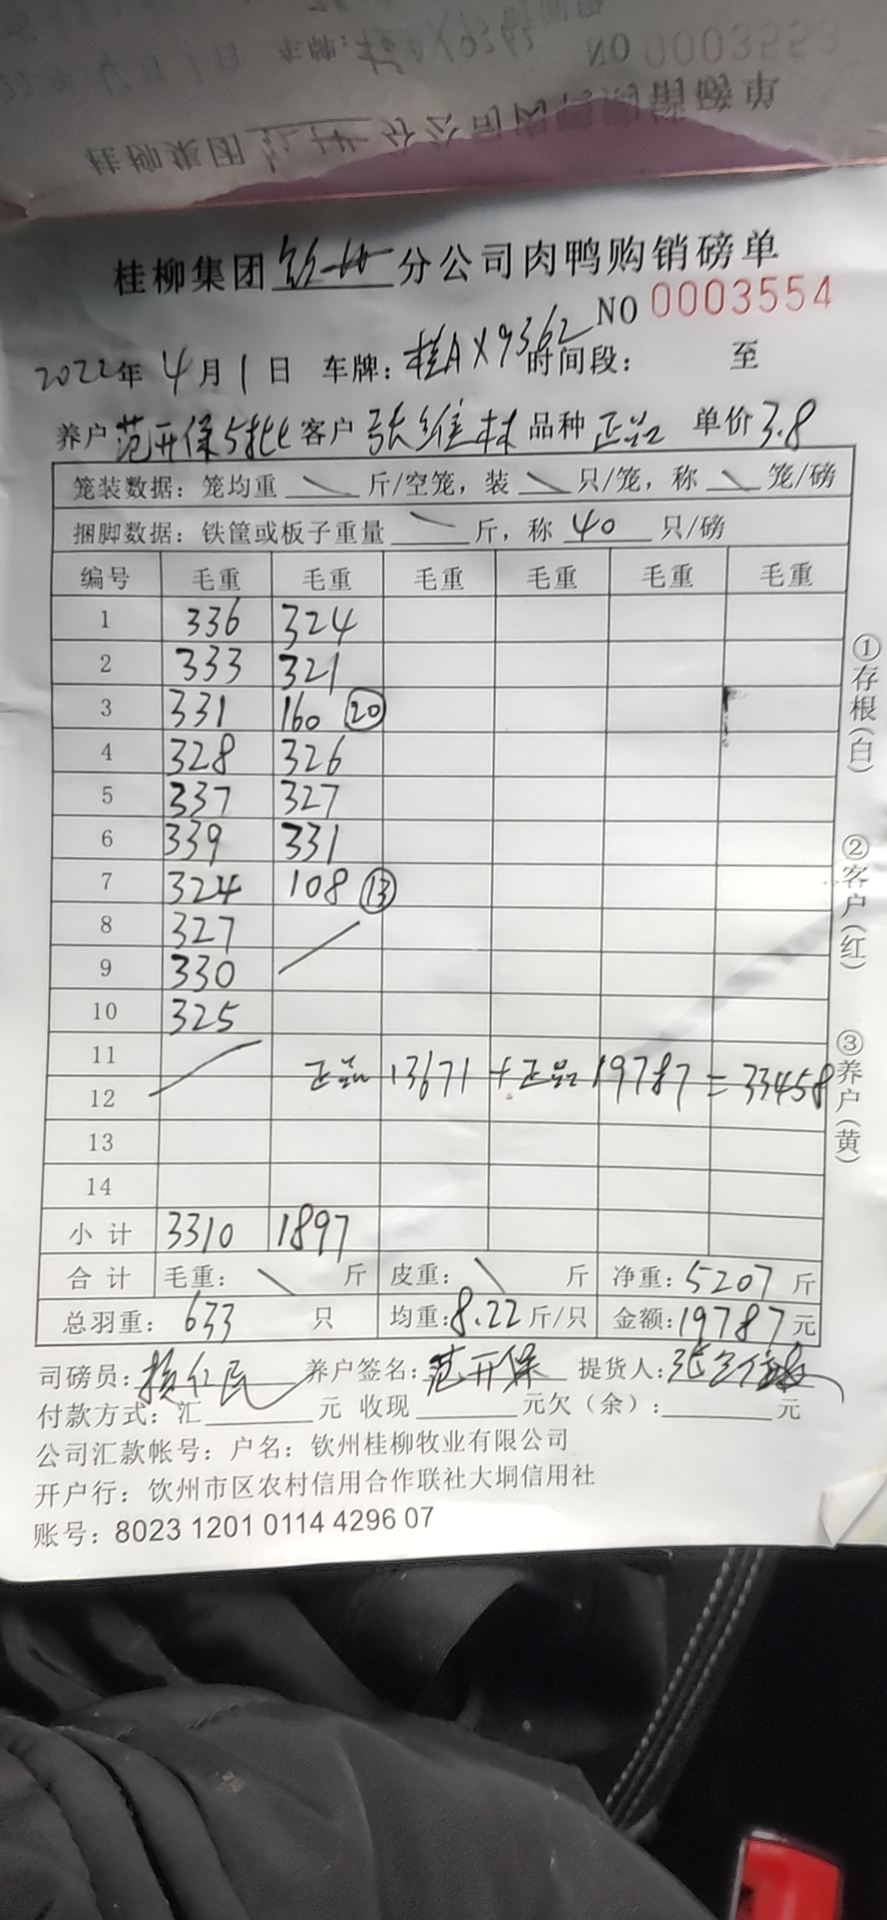 桂柳集团 分公司肉鸭购销磅单
NO 0003554
2022年 4月 1日 车牌：桂AX9362 时间段： 至
养户 范开保5批 客户 张维林 品种 正品 单价 3.8
笼装数据：笼均重 \ 斤/空笼，装 \ 只/笼，称 \ 笼/磅
捆脚数据：铁筐或板子重量 \ 斤，称 40 只/磅
编号 毛重 毛重 毛重 毛重 毛重 毛重
1 336 324
2 333 321
3 331 160 ⑳
4 328 326
5 337 327
6 339 331
7 324 108 ⑬
8 327
9 330 /
10 325
11 /
正品 13671 + 正品 19787 = 33458
12
13
14
小计 3310 1897
合计 毛重： \ 斤 皮重： \ 斤 净重：5207 斤
总羽重：633 只 均重：8.22 斤/只 金额：19787 元
司磅员： 养户签名：范开保 提货人：
付款方式：汇 元 收现 元欠（余）： 元
公司汇款帐号：户名：钦州桂柳牧业有限公司
开户行：钦州市区农村信用合作联社大垌信用社
账号：8023 1201 0114 4296 07
①存根（白） ②客户（红） ③养户（黄）